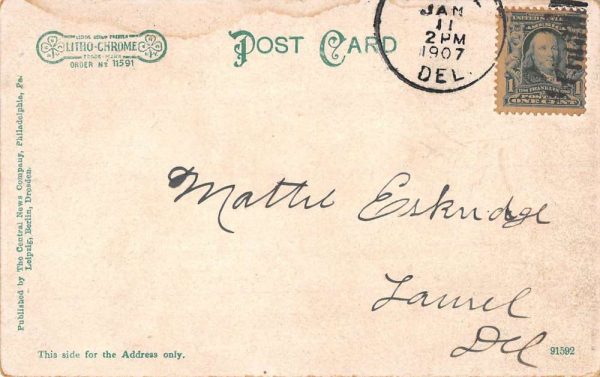 LITHO-CHROME
TRADE-MARK
ORDER Nº 11591
POST CARD
JAN
11
2PM
1907
DEL.
1 1
POSTAGE
ONE CENT
Published by The Central News Company, Philadelphia, Pa.
Leipzig, Berlin, Dresden.
Mattie Eskridge
Laurel
Del
This side for the Address only.
91592